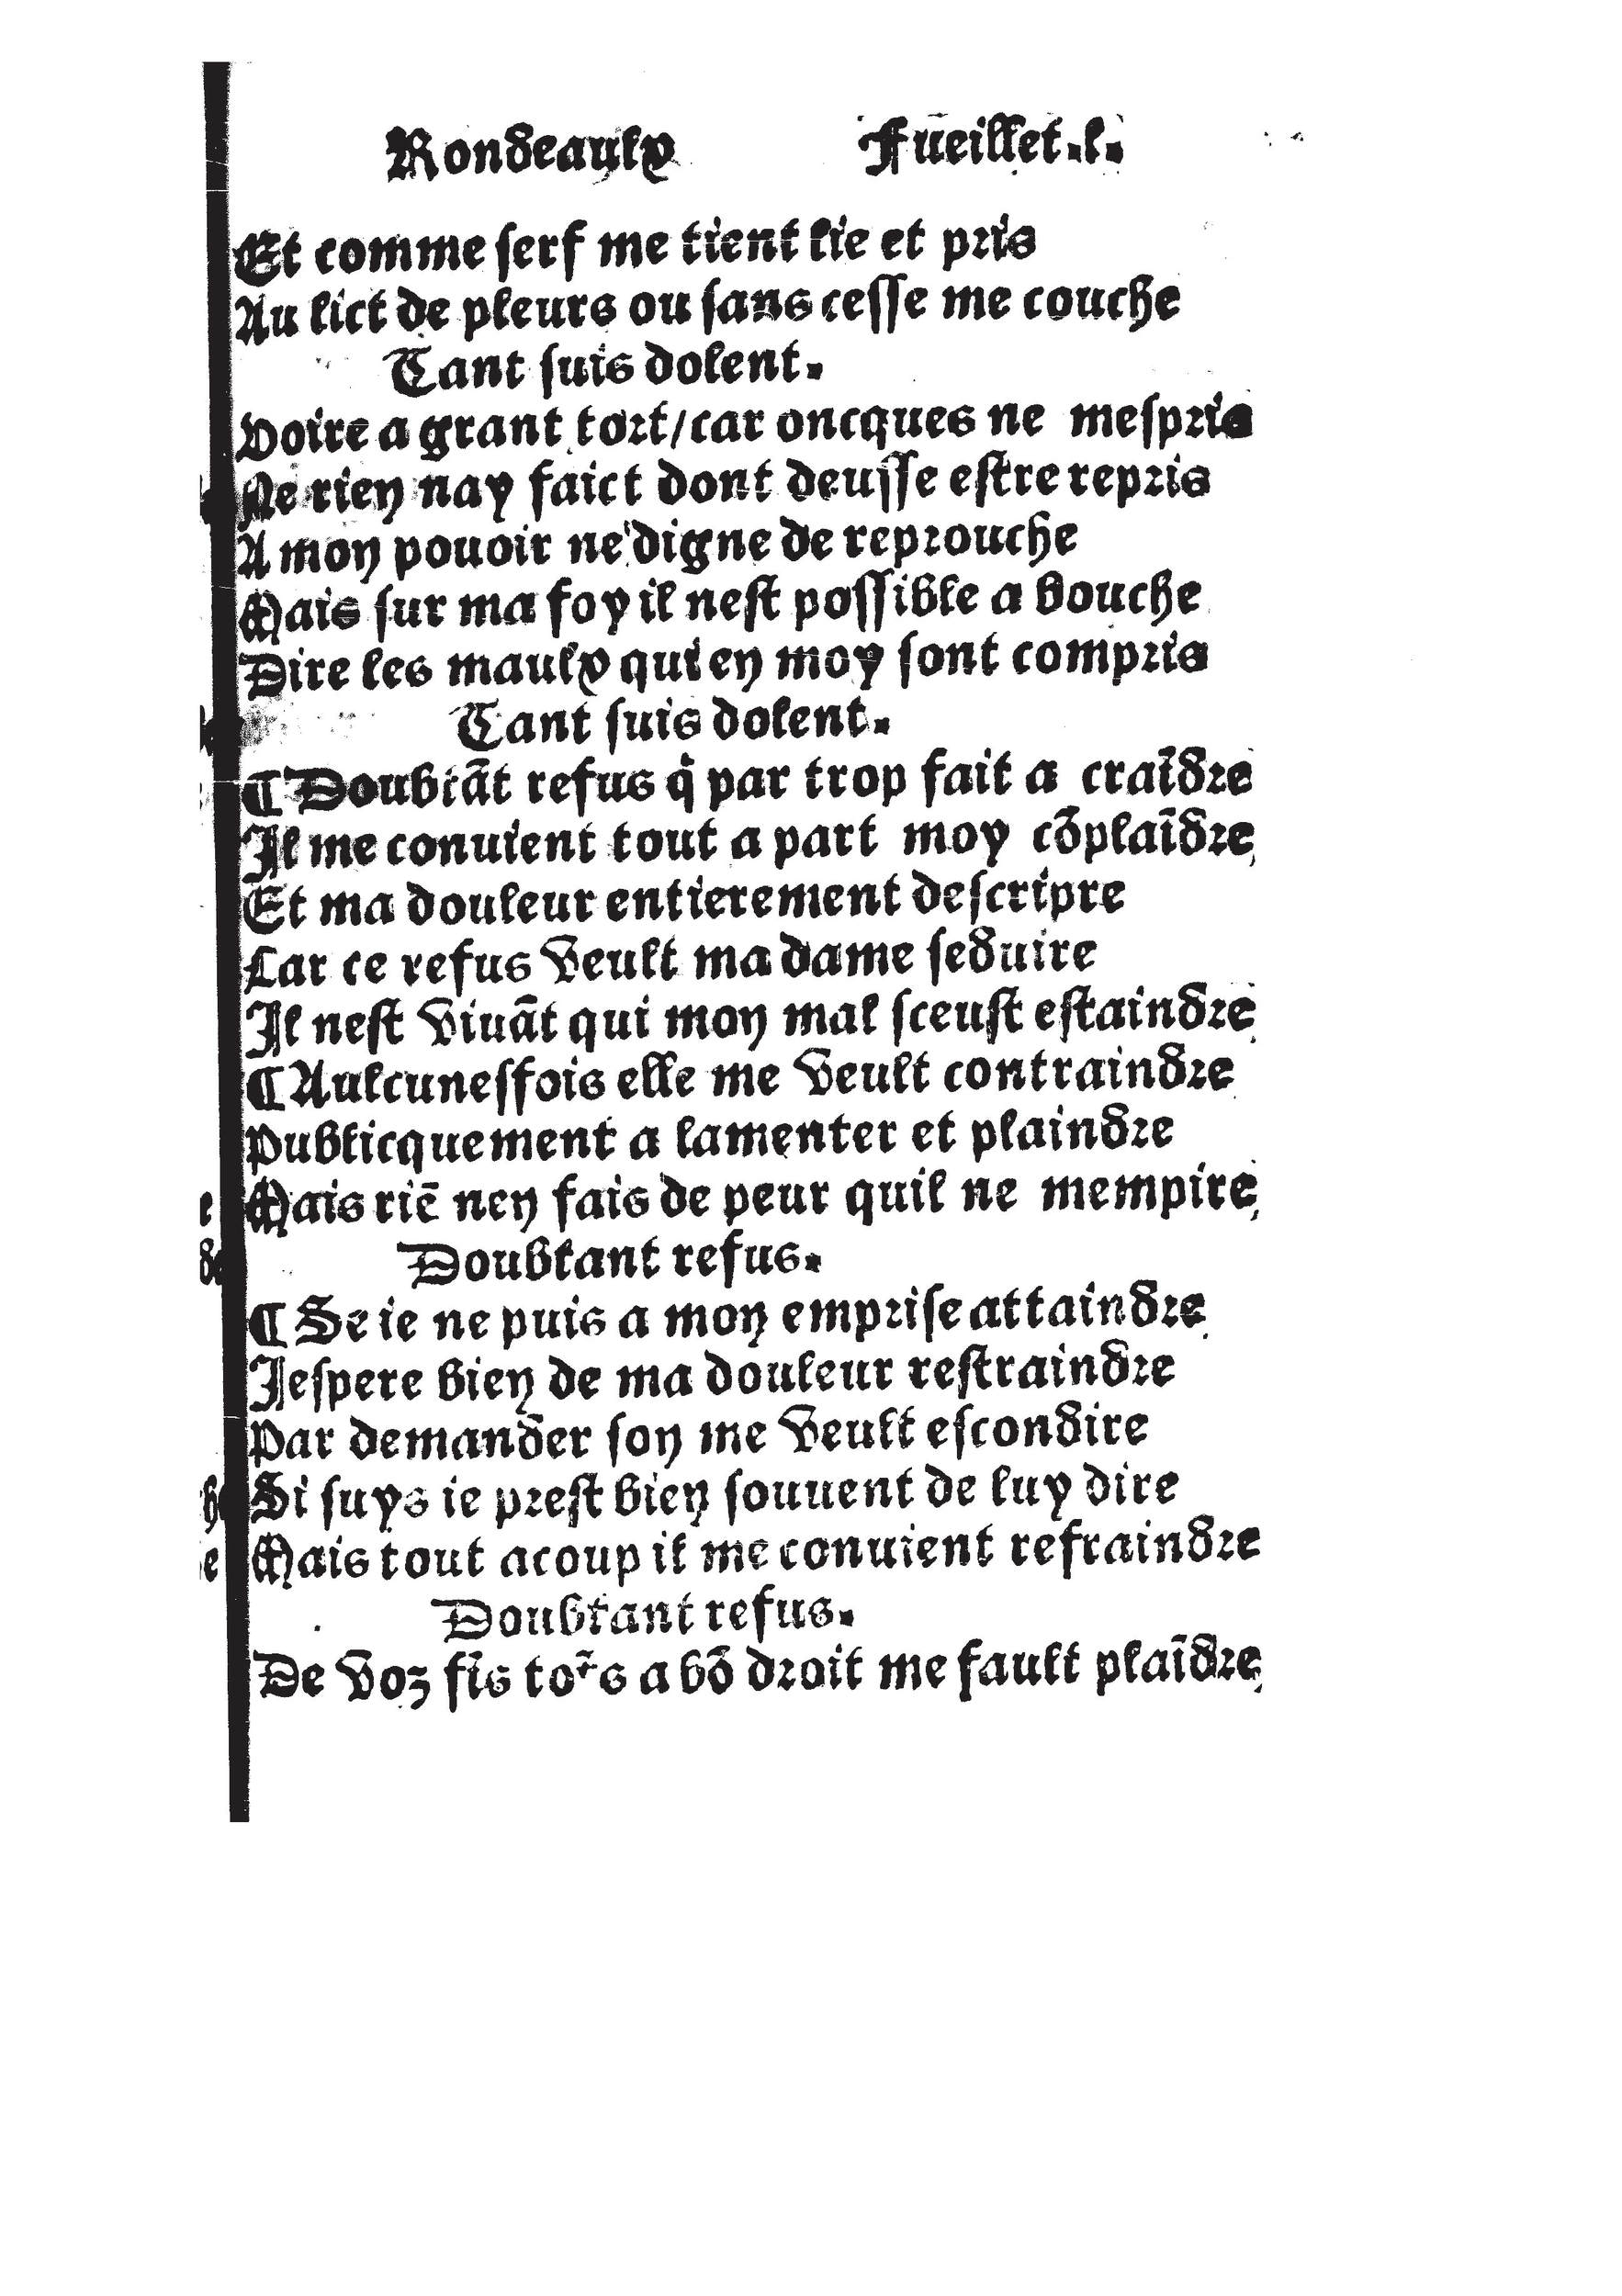 Rondeaulx Fueillet.l.
Et comme ſerf me tient lie et pris
Au lict de pleurs ou ſans ceſſe me couche
Tant ſuis dolent.
Voire a grant tort/car oncques ne meſpris
Ne rien nay faict dont deuſſe eſtre repris
A mon pouoir ne digne de reprouche
Mais ſur ma foy il neſt poſſible a bouche
Dire les maulx qui en moy ſont compris
Tant ſuis dolent.
¶ Doubtāt refus q̇ par trop fait a craīdre
Il me conuient tout a part moy cōplaīdre
Et ma douleur entierement deſcripre
Car ce refus veult ma dame ſeduire
Il neſt viuāt qui mon mal ſceuſt eſtaindre
¶ Aulcuneſfois elle me veult contraindre
Publicquement a lamenter et plaindre
Mais riē nen fais de peur quil ne mempire
Doubtant refus.
¶ Se ie ne puis a mon empriſe attaindre
Jeſpere bien de ma douleur reſtraindre
Par demander ſon me veult eſcondire
Si ſuys ie preſt bien ſouuent de luy dire
Mais tout acoup il me conuient refraindre
Doubtant refus.
De voz fīs toʳs a bō droit me fault plaīdre